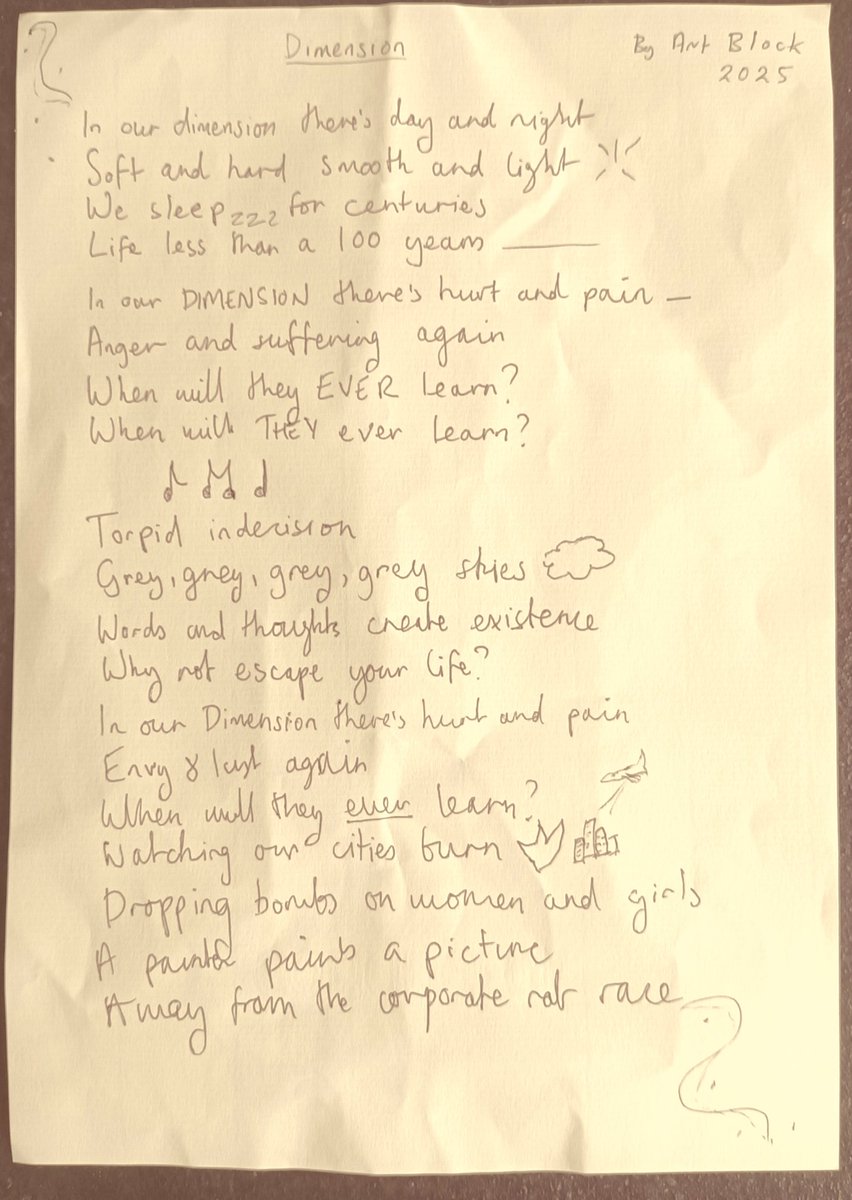 Dimension
By Art Block
2025
In our dimension there's day and night
Soft and hard smooth and light
We sleep zzz for centuries
Life less than a 100 years
In our DIMENSION there's hurt and pain –
Anger and suffering again
When will they EVER learn?
When will THEY ever learn?
Torpid indecision
Grey, grey, grey, grey skies
Words and thoughts create existence
Why not escape your life?
In our Dimension there's hurt and pain
Envy & lust again
When will they ever learn?
Watching our cities burn
Dropping bombs on women and girls
A painter paints a picture
Away from the corporate rat race